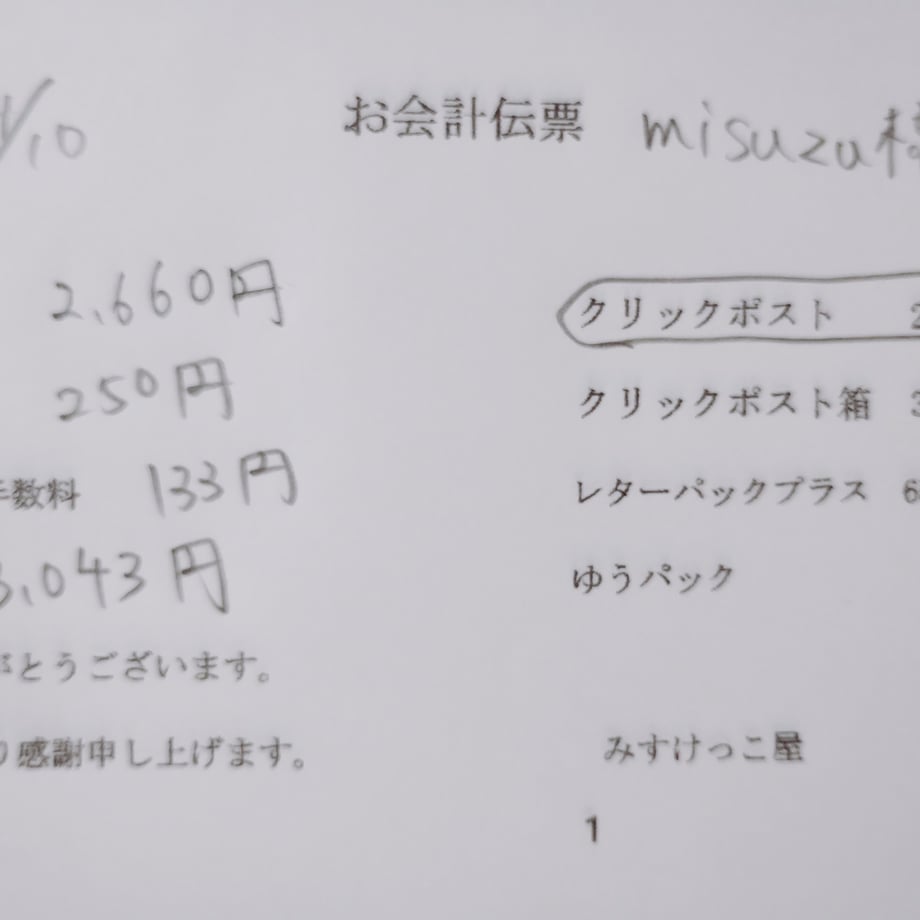 /10
お会計伝票
misuzu様
2,660円
250円
手数料 133円
3,043円
がとうございます。
り感謝申し上げます。
クリックポスト 2
クリックポスト箱 3
レターパックプラス 6
ゆうパック
みすけっこ屋
1